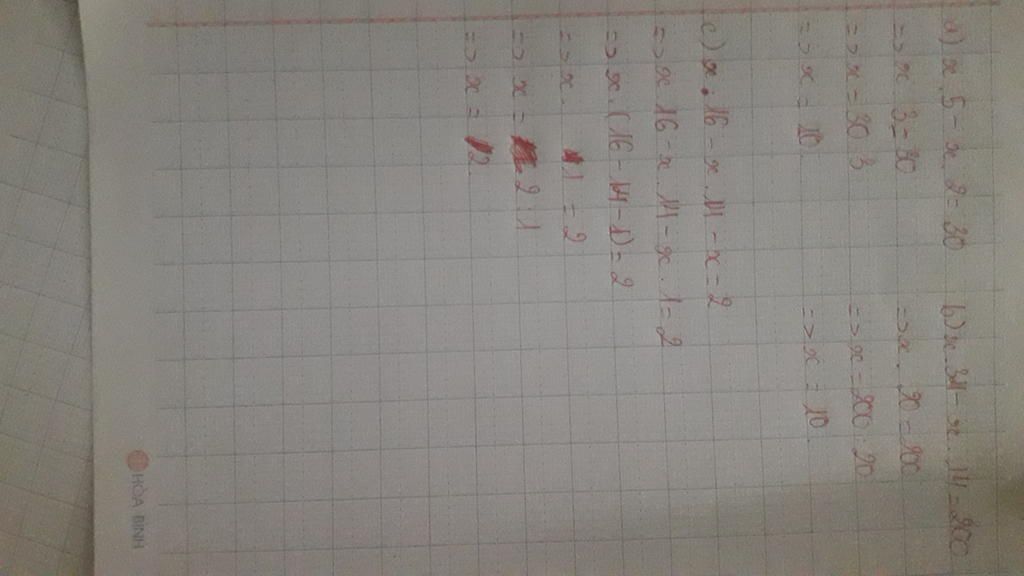 a) x.5 - x.2 = 30
=> x.3 = 30
=> x = 30:3
=> x = 10
b) x.34 - x.14 = 200
=> x.20 = 200
=> x = 200:20
=> x = 10
c) x.16 - x.14 - x = 2
=> x.16 - x.14 - x.1 = 2
=> x.(16 - 14 - 1) = 2
=> x.1 = 2
=> x = 2:1
=> x = 2
HOA BINH